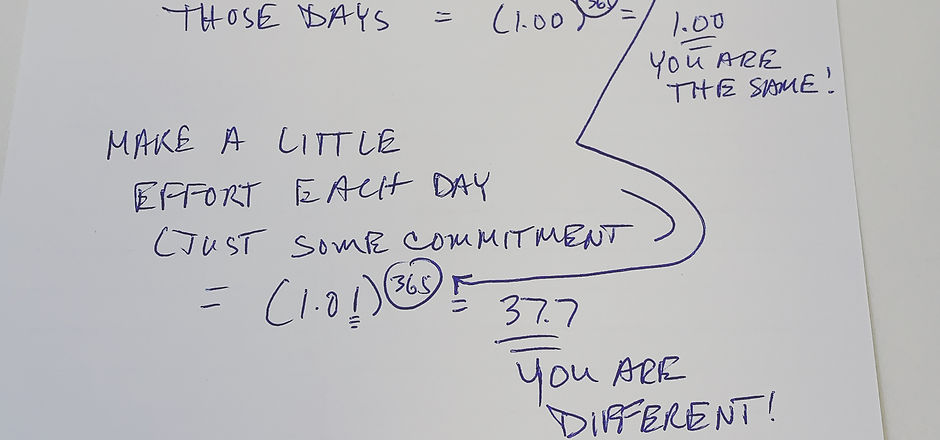 THOSE DAYS = (1.00)^365 = 1.00
YOU ARE
THE SAME!
MAKE A LITTLE
EFFORT EACH DAY
(JUST SOME COMMITMENT
= (1.01)^365 = 37.7
YOU ARE
DIFFERENT!